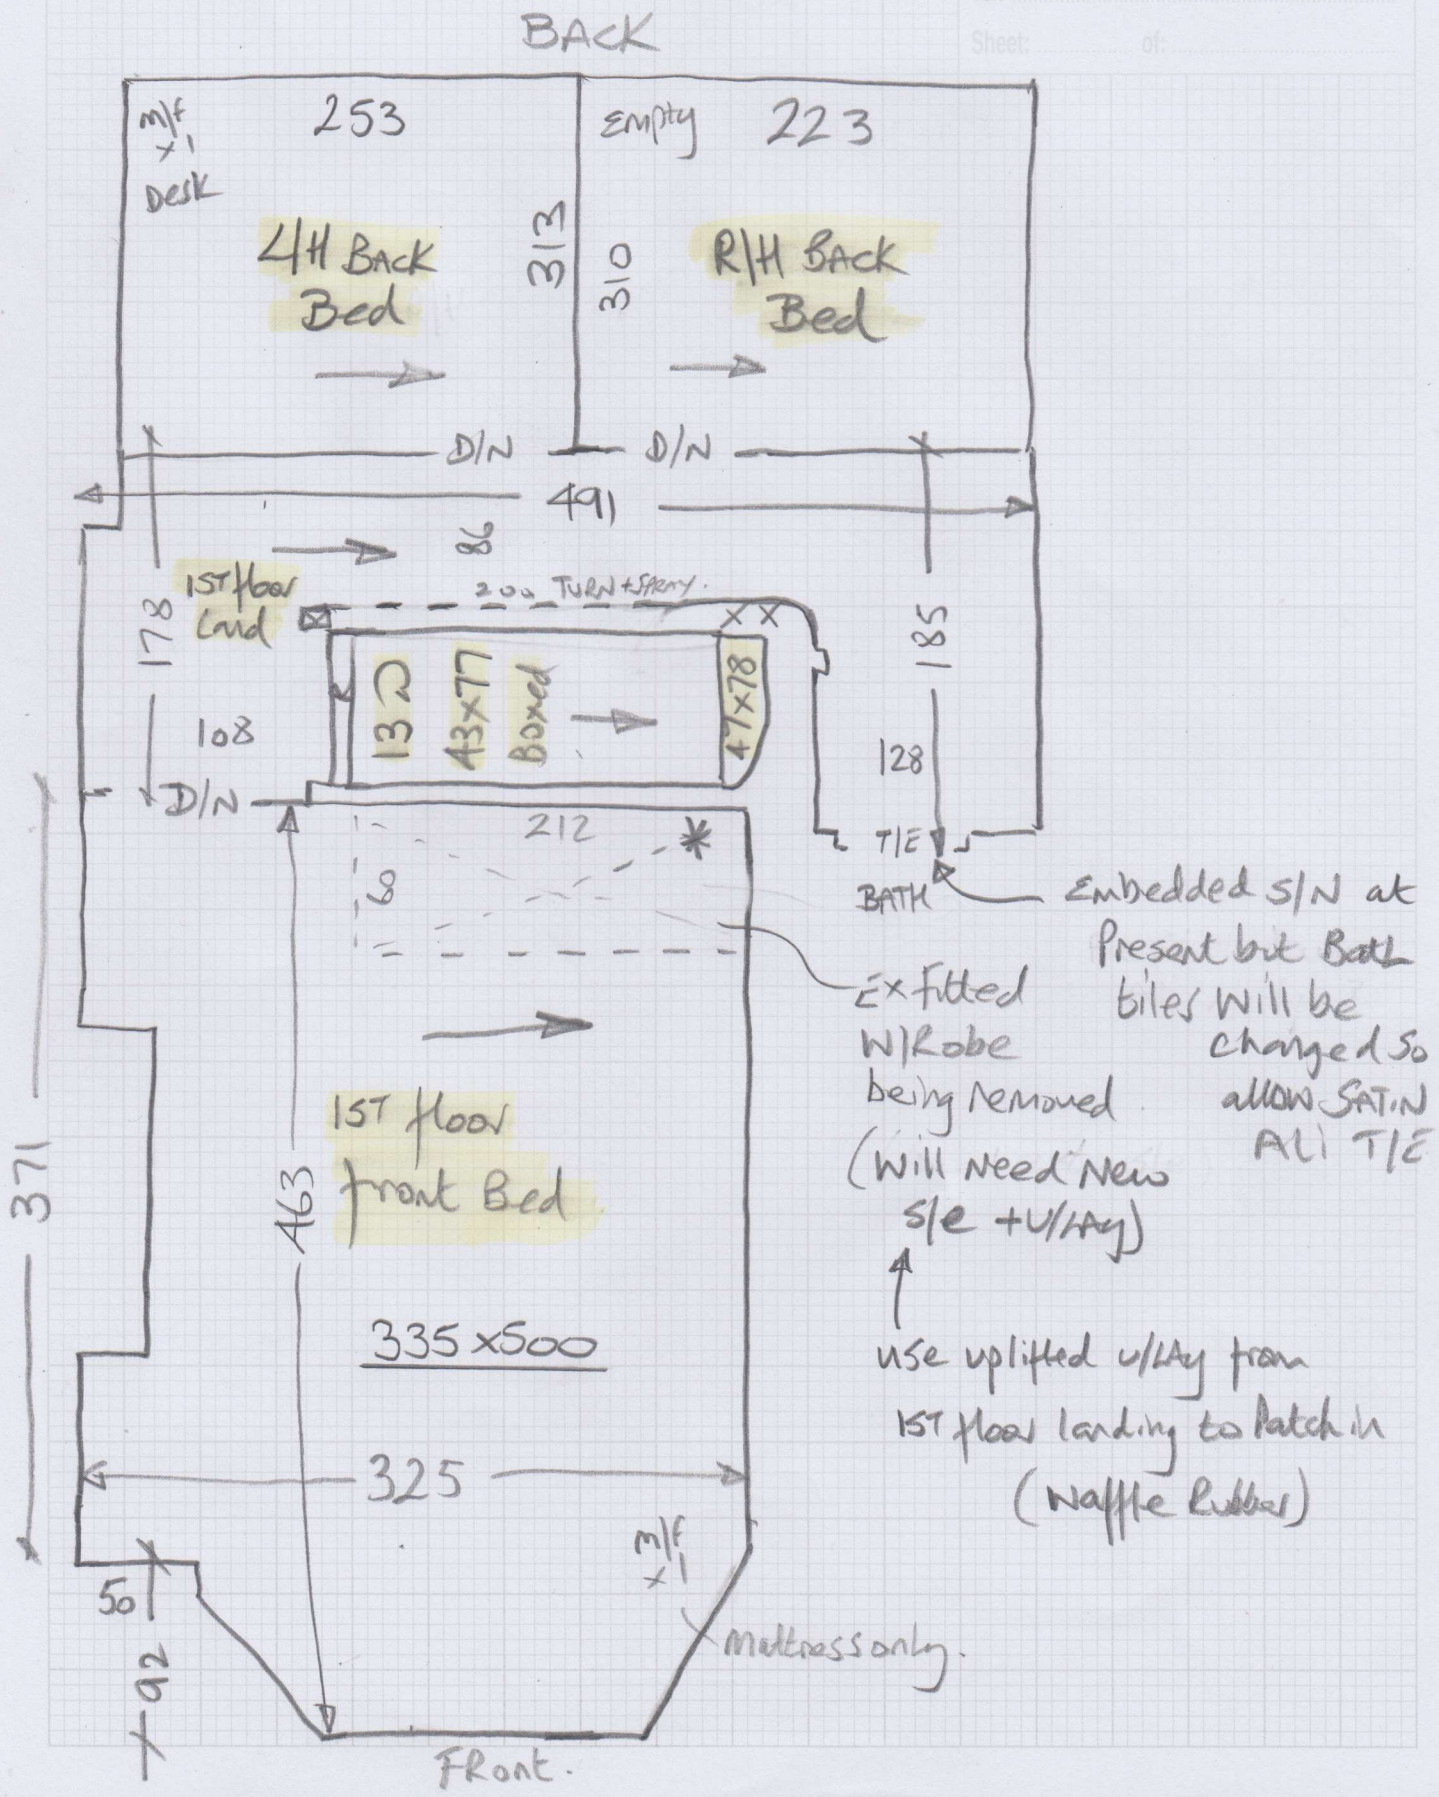 Sheet: of:
BACK
m/f
x1
Desk
253
Empty
223
L/H BACK
Bed
313
310
R/H BACK
Bed
D/N
D/N
491
86
1ST floor
Land
200 TURN + SPRAY.
X X
178
185
13
43x77
Boxed
47x78
108
128
D/N
T/E
BATH
212
60
Embedded S/N at
Present but Bath
tiles will be
changed so
allow SATIN
ALI T/E
Ex fitted
W/Robe
being removed
(Will Need New
S/E + U/LAY)
use uplifted u/LAy from
1ST floor landing to Patch in
(Waffle Rubber)
1ST floor
front Bed
463
371
335 x 500
325
m/f
x1
Mattress only.
50
92
FRont.